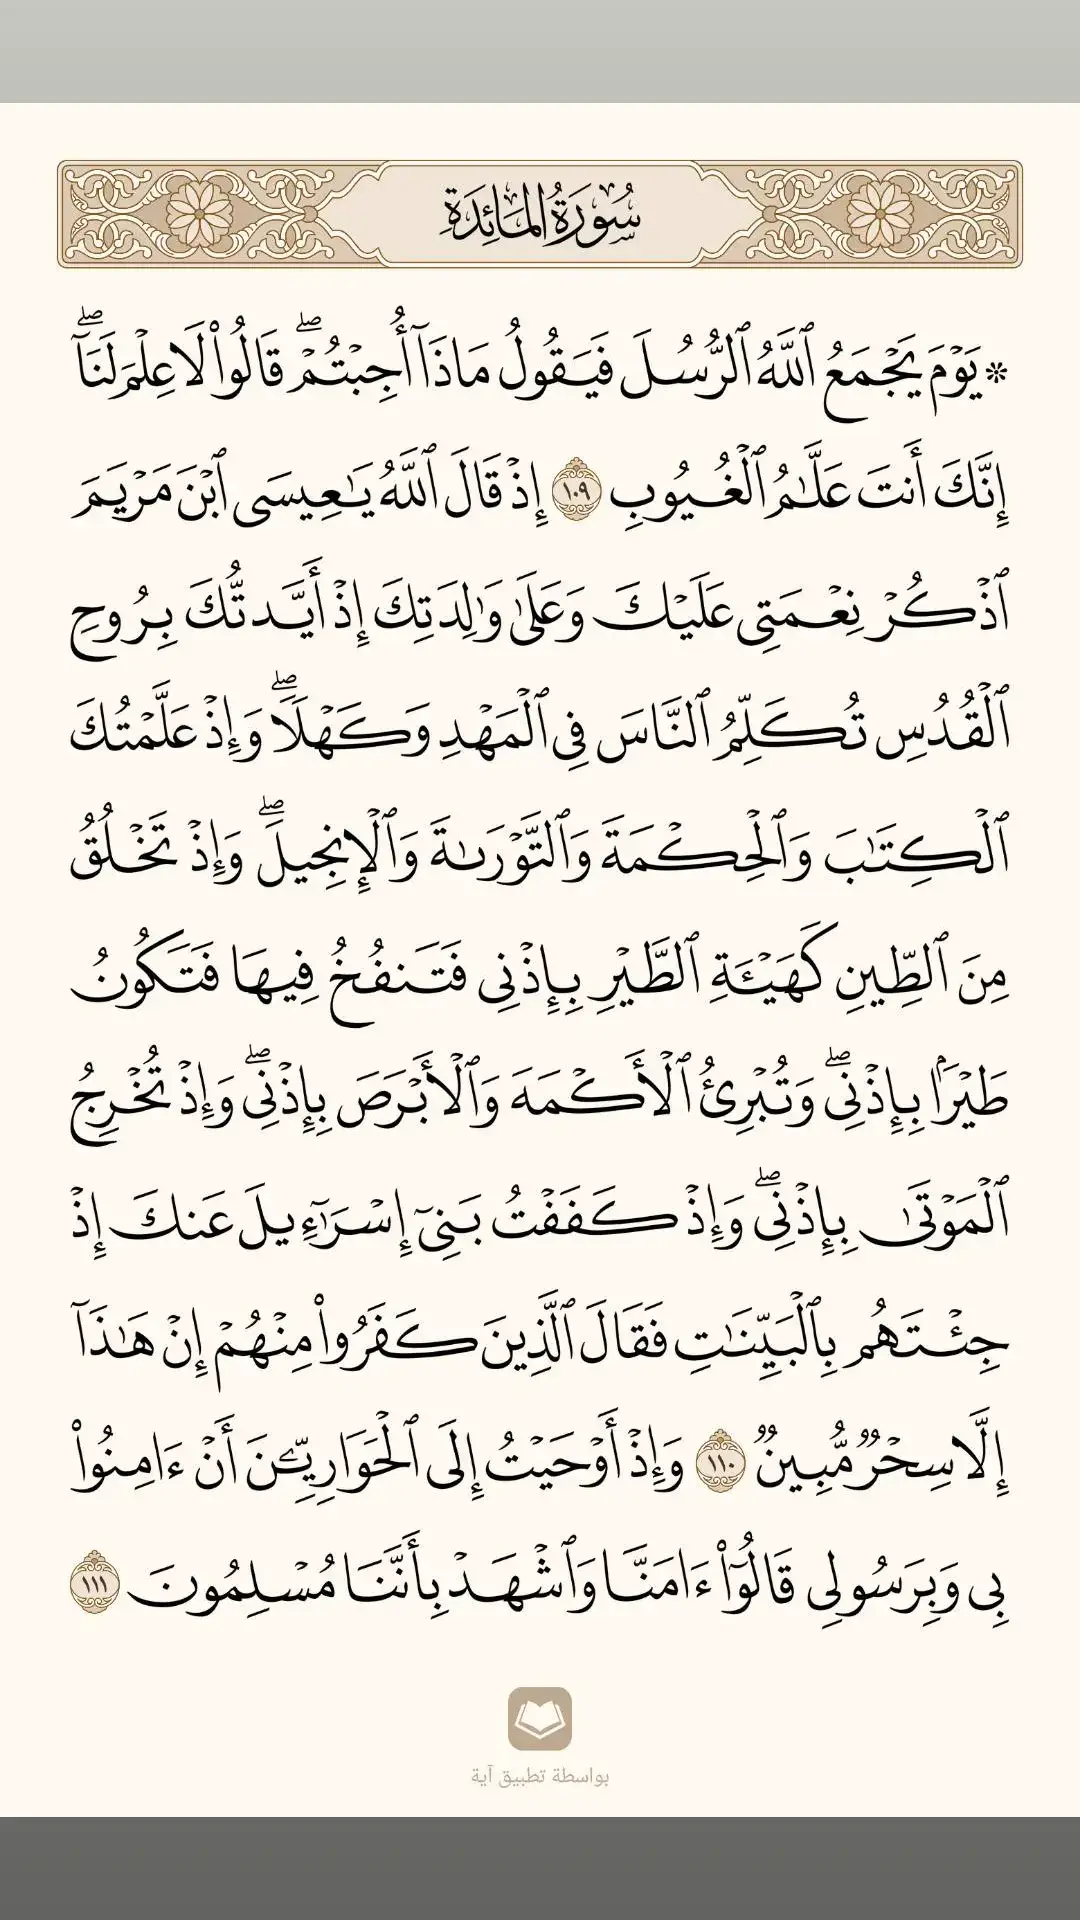 سُورَةُ المَائِدَةِ
۞ يَوۡمَ يَجۡمَعُ ٱللَّهُ ٱلرُّسُلَ فَيَقُولُ مَاذَآ أُجِبۡتُمۡۖ قَالُواْ لَا عِلۡمَ لَنَآۖ
إِنَّكَ أَنتَ عَلَّٰمُ ٱلۡغُيُوبِ ١٠٩ إِذۡ قَالَ ٱللَّهُ يَٰعِيسَى ٱبۡنَ مَرۡيَمَ
ٱذۡكُرۡ نِعۡمَتِي عَلَيۡكَ وَعَلَىٰ وَٰلِدَتِكَ إِذۡ أَيَّدتُّكَ بِرُوحِ
ٱلۡقُدُسِ تُكَلِّمُ ٱلنَّاسَ فِي ٱلۡمَهۡدِ وَكَهۡلٗاۖ وَإِذۡ عَلَّمۡتُكَ
ٱلۡكِتَٰبَ وَٱلۡحِكۡمَةَ وَٱلتَّوۡرَىٰةَ وَٱلۡإِنجِيلَۖ وَإِذۡ تَخۡلُقُ
مِنَ ٱلطِّينِ كَهَيۡـَٔةِ ٱلطَّيۡرِ بِإِذۡنِي فَتَنفُخُ فِيهَا فَتَكُونُ
طَيۡرَۢا بِإِذۡنِيۖ وَتُبۡرِئُ ٱلۡأَكۡمَهَ وَٱلۡأَبۡرَصَ بِإِذۡنِيۖ وَإِذۡ تُخۡرِجُ
ٱلۡمَوۡتَىٰ بِإِذۡنِيۖ وَإِذۡ كَفَفۡتُ بَنِيٓ إِسۡرَٰٓءِيلَ عَنكَ إِذۡ
جِئۡتَهُم بِٱلۡبَيِّنَٰتِ فَقَالَ ٱلَّذِينَ كَفَرُواْ مِنۡهُمۡ إِنۡ هَٰذَآ
إِلَّا سِحۡرٞ مُّبِينٞ ١١٠ وَإِذۡ أَوۡحَيۡتُ إِلَى ٱلۡحَوَارِيِّـۧنَ أَنۡ ءَامِنُواْ
بِي وَبِرَسُولِي قَالُوٓاْ ءَامَنَّا وَٱشۡهَدۡ بِأَنَّنَا مُسۡلِمُونَ ١١١
بواسطة تطبيق آية